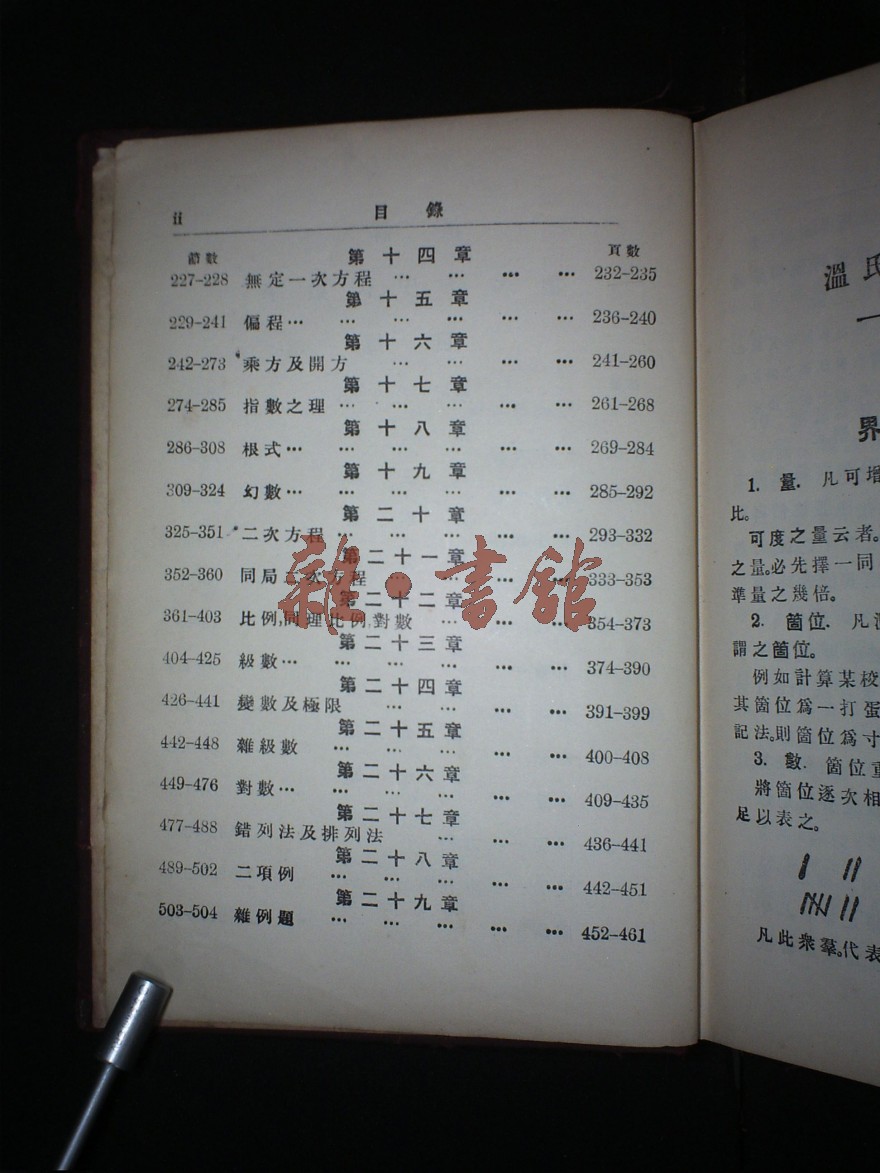 ii 目錄
節數 第十四章 頁數
227–228 無定一次方程 … … … … 232–235
第十五章
229–241 偏程… … … … … … 236–240
第十六章
242–273 乘方及開方 … … … … 241–260
第十七章
274–285 指數之理 … … … … … 261–268
第十八章
286–308 根式… … … … … … 269–284
第十九章
309–324 幻數… … … … … … 285–292
第二十章
325–351 二次方程 … … … … … 293–332
第二十一章
352–360 同局二次方程 … … … … 333–353
第二十二章
361–403 比例,同理比例,對數 … … … 354–373
第二十三章
404–425 級數… … … … … … 374–390
第二十四章
426–441 變數及極限 … … … … 391–399
第二十五章
442–448 雜級數 … … … … … 400–408
第二十六章
449–476 對數… … … … … … 409–435
第二十七章
477–488 錯列法及排列法 … … … 436–441
第二十八章
489–502 二項例 … … … … … 442–451
第二十九章
503–504 雜例題 … … … … … 452–461
雜·書館
溫氏
界
1. 量. 凡可增
比。
可度之量云者。
之量。必先擇一同
準量之幾倍。
2. 箇位. 凡
謂之箇位。
例如計算某校
其箇位爲一打蛋
記法。則箇位爲寸
3. 數. 箇位重
將箇位逐次相
足以表之。
凡此衆羣。代表